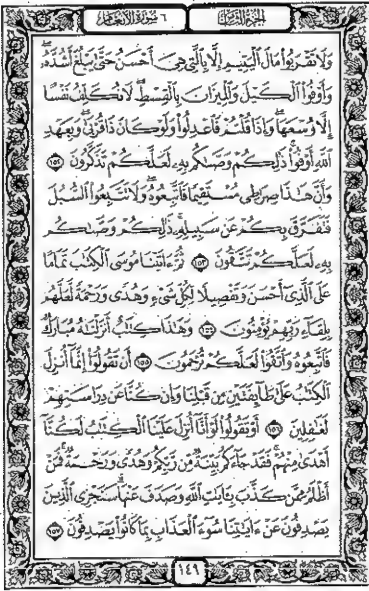 الجزء الثامن
٦ سورة الأنعام
وَلَا تَقْرَبُوا۟ مَالَ ٱلْيَتِيمِ إِلَّا بِٱلَّتِى هِىَ أَحْسَنُ حَتَّىٰ يَبْلُغَ أَشُدَّهُۥ
وَأَوْفُوا۟ ٱلْكَيْلَ وَٱلْمِيزَانَ بِٱلْقِسْطِ لَا نُكَلِّفُ نَفْسًا
إِلَّا وُسْعَهَا وَإِذَا قُلْتُمْ فَٱعْدِلُوا۟ وَلَوْ كَانَ ذَا قُرْبَىٰ وَبِعَهْدِ
ٱللَّهِ أَوْفُوا۟ ذَٰلِكُمْ وَصَّىٰكُم بِهِۦ لَعَلَّكُمْ تَذَكَّرُونَ ١٥٢
وَأَنَّ هَٰذَا صِرَٰطِى مُسْتَقِيمًا فَٱتَّبِعُوهُ وَلَا تَتَّبِعُوا۟ ٱلسُّبُلَ
فَتَفَرَّقَ بِكُمْ عَن سَبِيلِهِۦ ذَٰلِكُمْ وَصَّىٰكُم
بِهِۦ لَعَلَّكُمْ تَتَّقُونَ ١٥٣ ثُمَّ ءَاتَيْنَا مُوسَى ٱلْكِتَٰبَ تَمَامًا
عَلَى ٱلَّذِىٓ أَحْسَنَ وَتَفْصِيلًا لِّكُلِّ شَىْءٍ وَهُدًى وَرَحْمَةً لَّعَلَّهُم
بِلِقَآءِ رَبِّهِمْ يُؤْمِنُونَ ١٥٤ وَهَٰذَا كِتَٰبٌ أَنزَلْنَٰهُ مُبَارَكٌ
فَٱتَّبِعُوهُ وَٱتَّقُوا۟ لَعَلَّكُمْ تُرْحَمُونَ ١٥٥ أَن تَقُولُوٓا۟ إِنَّمَآ أُنزِلَ
ٱلْكِتَٰبُ عَلَىٰ طَآئِفَتَيْنِ مِن قَبْلِنَا وَإِن كُنَّا عَن دِرَاسَتِهِمْ
لَغَٰفِلِينَ ١٥٦ أَوْ تَقُولُوا۟ لَوْ أَنَّآ أُنزِلَ عَلَيْنَا ٱلْكِتَٰبُ لَكُنَّآ
أَهْدَىٰ مِنْهُمْ فَقَدْ جَآءَكُم بَيِّنَةٌ مِّن رَّبِّكُمْ وَهُدًى وَرَحْمَةٌ فَمَنْ
أَظْلَمُ مِمَّن كَذَّبَ بِـَٔايَٰتِ ٱللَّهِ وَصَدَفَ عَنْهَا سَنَجْزِى ٱلَّذِينَ
يَصْدِفُونَ عَنْ ءَايَٰتِنَا سُوٓءَ ٱلْعَذَابِ بِمَا كَانُوا۟ يَصْدِفُونَ ١٥٧
١٤٩